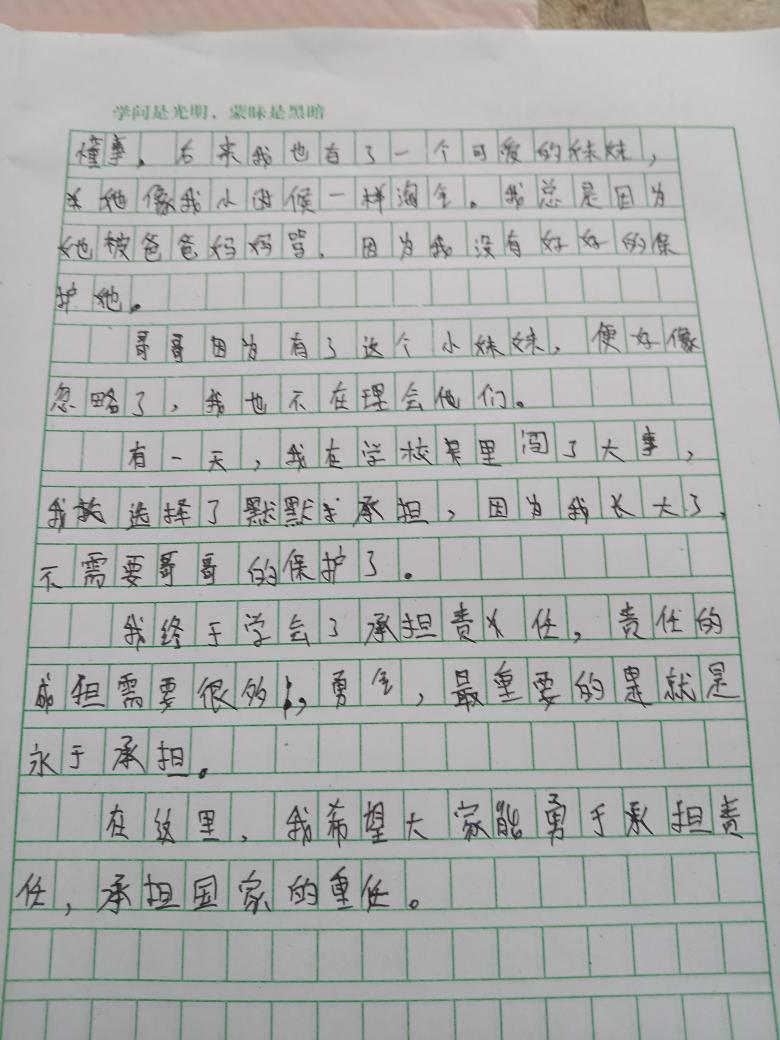 学问是光明，蒙昧是黑暗
懂事。右来我也有了一个可爱的妹妹，
她像我小时候一样淘气。我总是因为
她被爸爸妈妈骂，因为我没有好好的保
护她。
哥哥因为有了这个小妹妹，便好像
忽略了，我也不在理会他们。
有一天，我在学校里闯了大事，
我选择了默默承担，因为我长大了，
不需要哥哥的保护了。
我终于学会了承担责任，责任的
成担需要很多，勇气，最重要的是就是
永于承担。
在这里，我希望大家能勇于承担责
任，承担国家的重任。